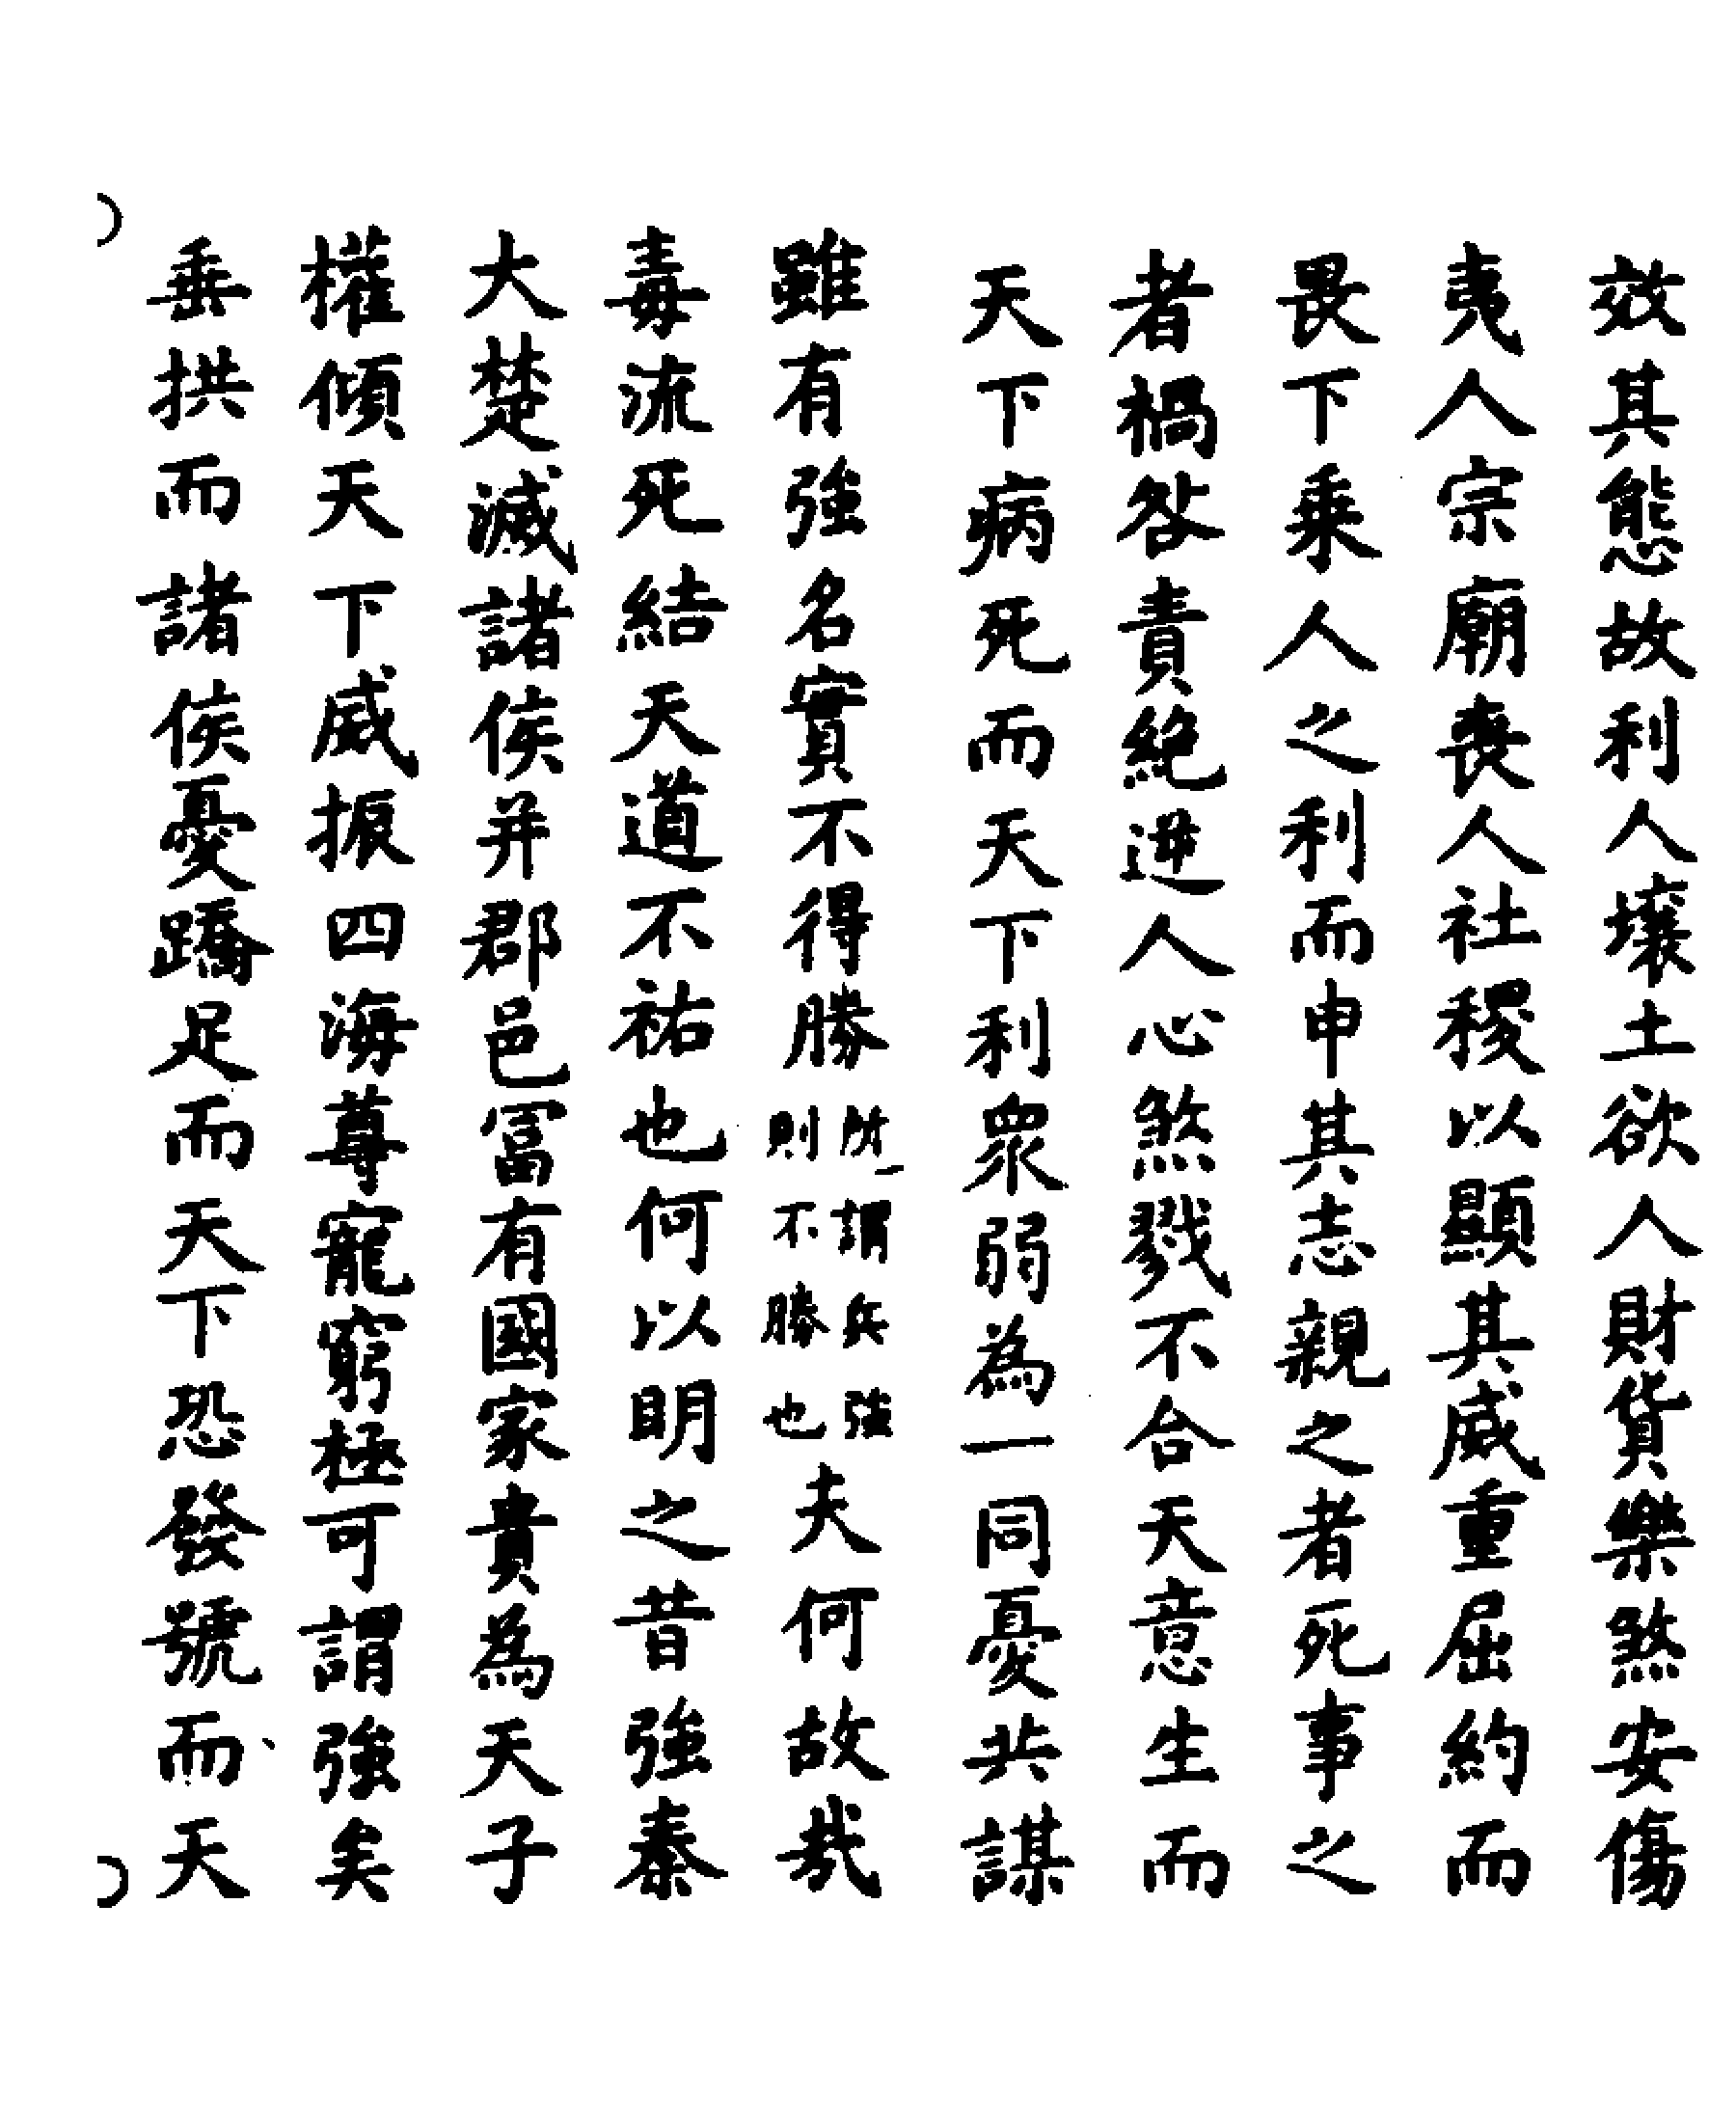 效其態故利人壤土欲人財貨樂煞安傷
夷人宗廟喪人社稷以顯其威重屈約而
畏下乘人之利而申其志親之者死事之
者禍咎責絕逆人心煞戮不合天意生而
天下病死而天下利衆弱為一同憂共謀
雖有強名實不得勝所謂兵強則不勝也夫何故哉
毒流死結天道不祐也何以明之昔強秦
大楚滅諸侯并郡邑冨有國家貴為天子
權傾天下威振四海尊寵窮極可謂強矣
垂拱而諸侯憂蹻足而天下恐發號而天